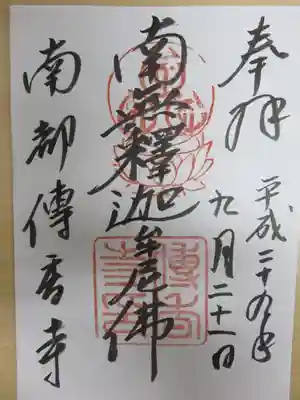 奉拝
平成二十九年
九月二十一日
南無釋迦牟尼佛
南都傳香寺
傳香寺印